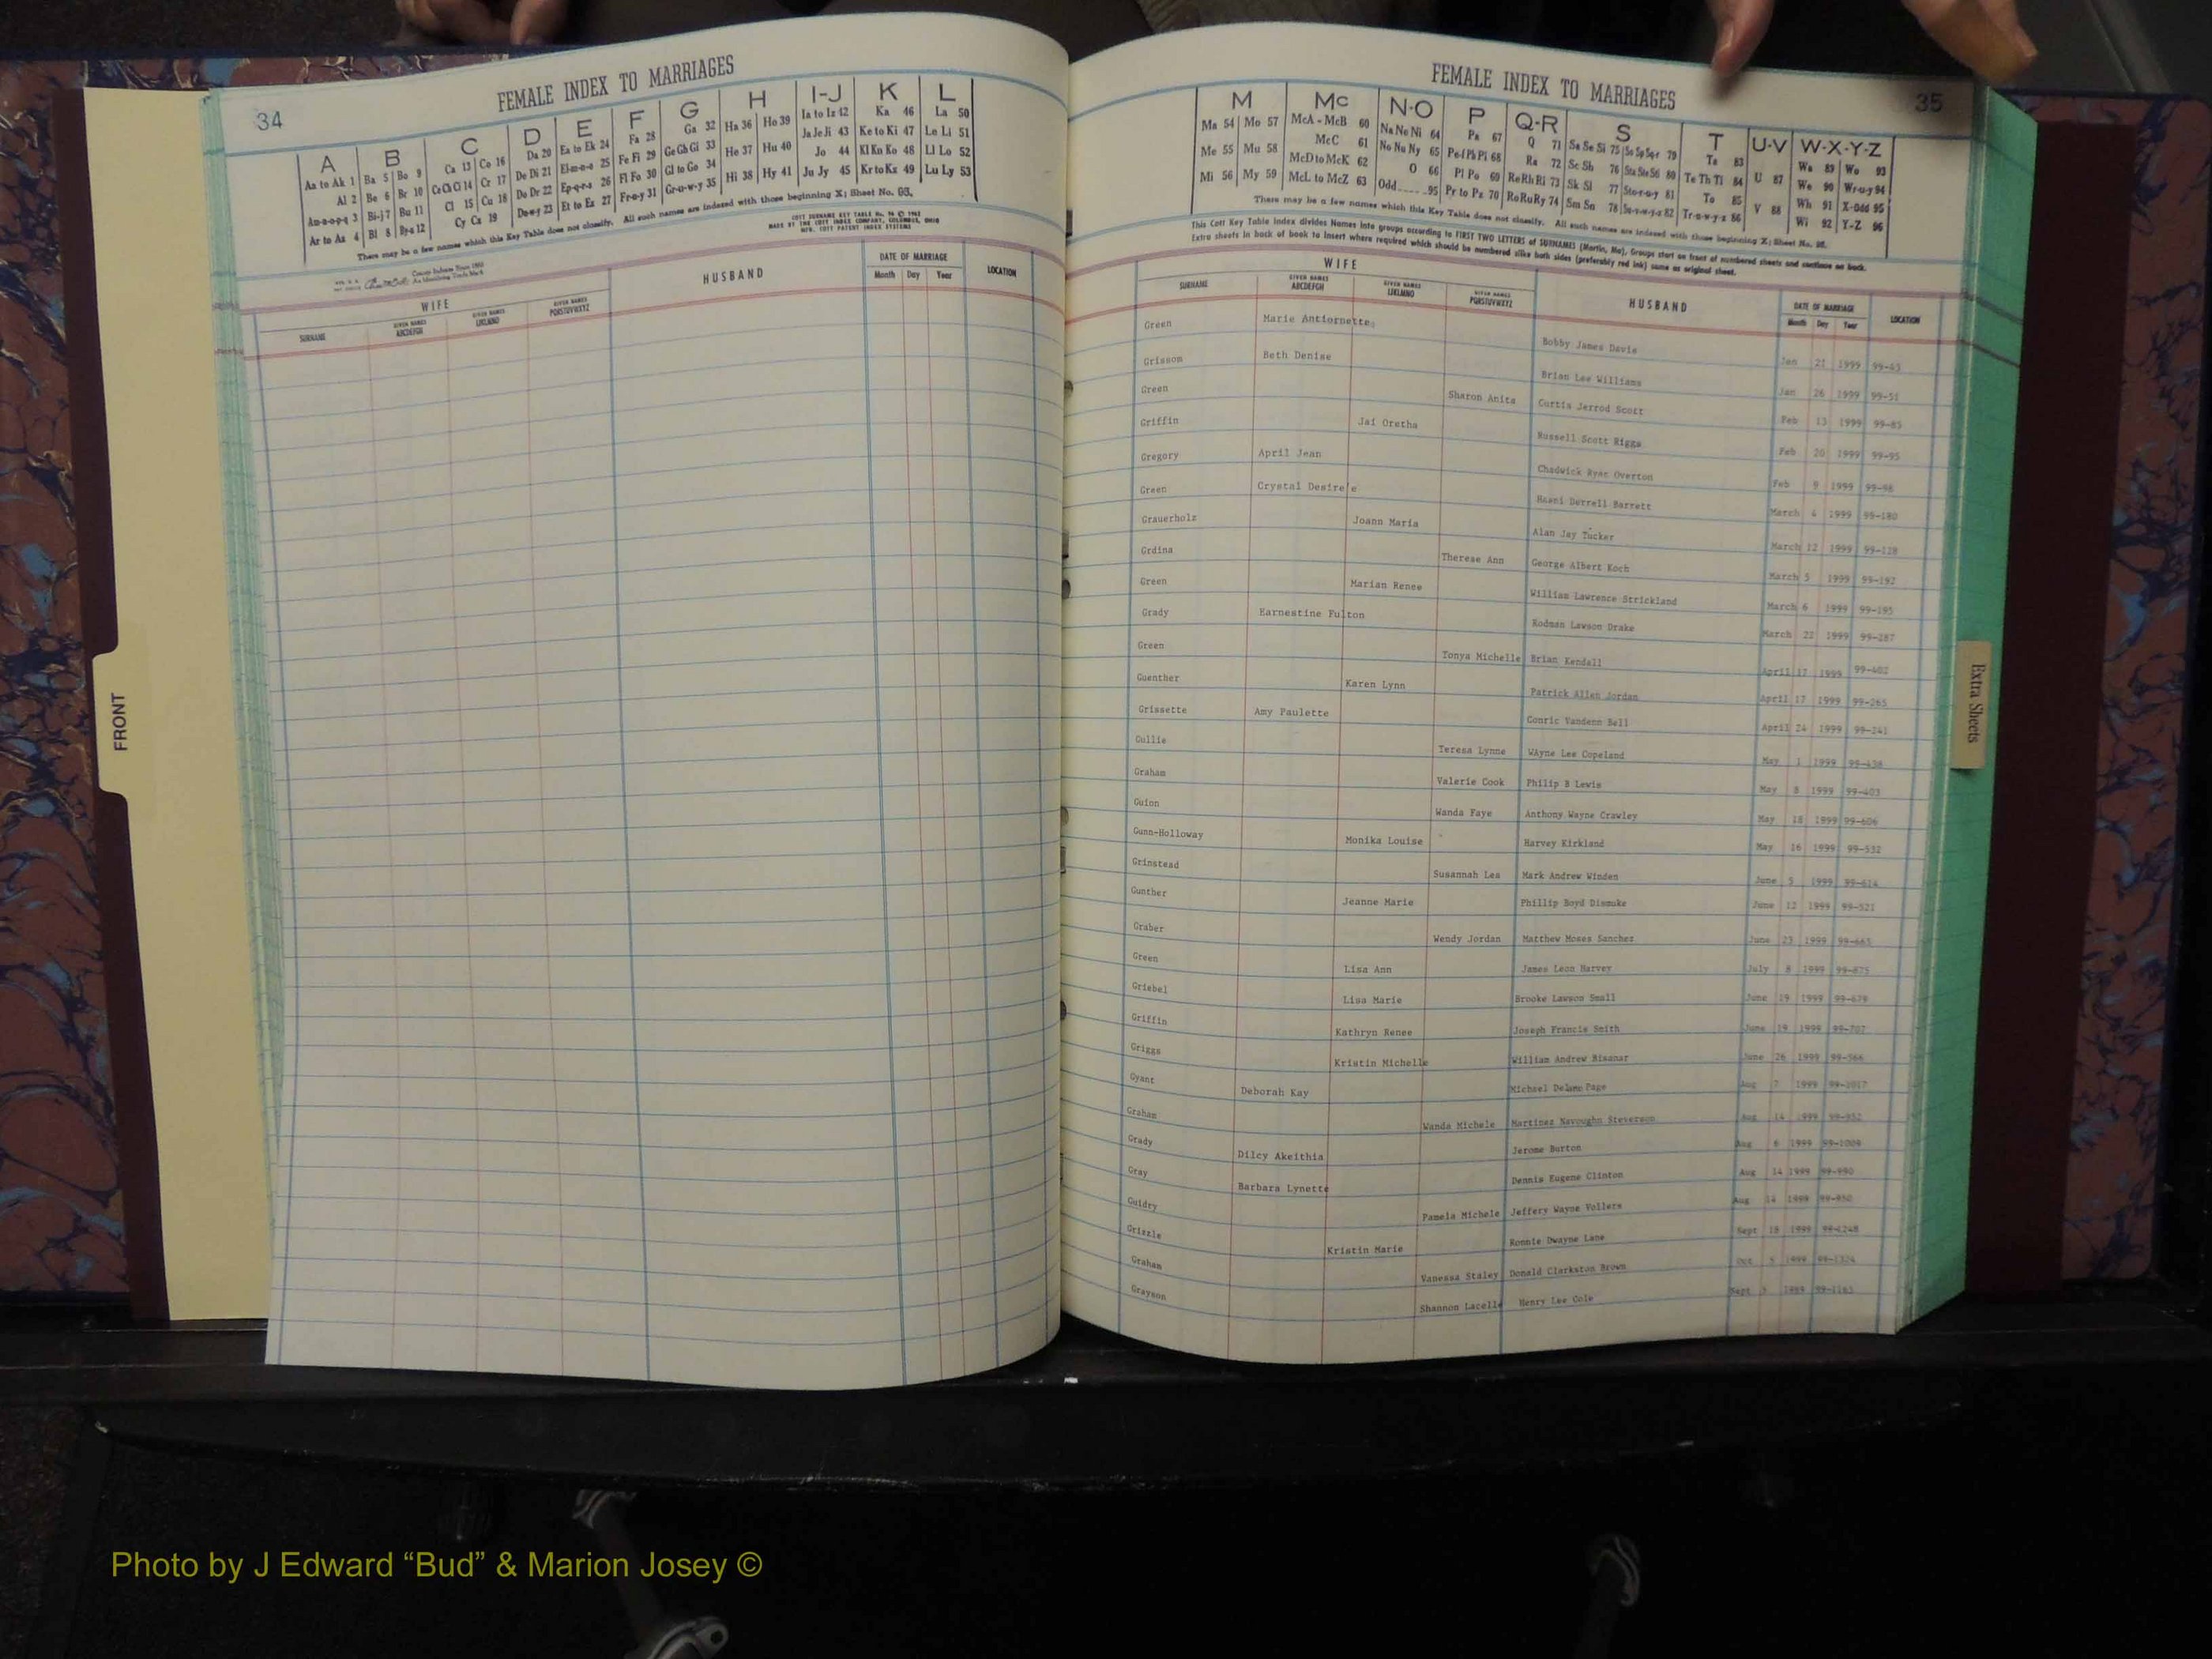 34
FEMALE INDEX TO MARRIAGES
A B C D E F G H I-J K L
Aa to Ak 1 Ba 5 Bo 9 Ca 13 Co 16 Da 20 Ea to Ek 24 Fa 28 Ga 32 Ha 36 Ho 39 Ia to Iz 42 Ka 46 La 50
Al 2 Be 6 Br 10 Ce Ch Ci 14 Cr 17 De Di 21 El-m-n-o 25 Fe Fi 29 Ge Gh Gi 33 He 37 Hu 40 Ja Je Ji 43 Ke to Ki 47 Le Li 51
Am-n-o-p-q 3 Bi-j 7 Bu 11 Cl 15 Cu 18 Do Dr 22 Ep-q-r-s 26 Fl Fo 30 Gl to Go 34 Hi 38 Hy 41 Jo 44 Kl Kn Ko 48 Ll Lo 52
Ar to Az 4 Bl 8 By-z 12 Cy Cz 19 Du-w-y 23 Et to Ez 27 Fr-u-y 31 Gr-u-w-y 35 Ju Jy 45 Kr to Kz 49 Lu Ly 53
There may be a few names which this Key Table does not classify. All such names are indexed with those beginning X; Sheet No. 93.
COTT SURNAME KEY TABLE No. 96 © 1962
MADE BY THE COTT INDEX COMPANY, COLUMBUS, OHIO
MFG. COTT PATENT INDEX SYSTEMS
County Indexes Since 1888
WIFE HUSBAND DATE OF MARRIAGE LOCATION
SURNAME GIVEN NAMES ABCDEFGH GIVEN NAMES IJKLMNO GIVEN NAMES PQRSTUVWXYZ Month Day Year
FEMALE INDEX TO MARRIAGES
35
M Mc N-O P Q-R S T U-V W-X-Y-Z
Ma 54 Mo 57 McA - McB 60 Na Ne Ni 64 Pa 67 Q 71 Sa Se Si 75 So Sp Sq-r 79 Ta 83 U 87 Wa 89 Wo 93
Me 55 Mu 58 McC 61 No Nu Ny 65 Pe-f Ph Pi 68 Ra 72 Sc Sh 76 Sta Ste Sti 80 Te Th Ti 84 V 88 We 90 Wr-u-y 94
Mi 56 My 59 McD to McK 62 O 66 Pl Po 69 Re Rh Ri 73 Sk Sl 77 Sto-r-u-y 81 To 85 Wh 91 X-Odd 95
McL to McZ 63 Odd 95 Pr to Pz 70 Ro Ru Ry 74 Sm Sn 78 Su-v-w-y-z 82 Tr-u-w-y-z 86 Wi 92 Y-Z 96
There may be a few names which this Key Table does not classify. All such names are indexed with those beginning X; Sheet No. 95.
This Cott Key Table Index divides Names into groups according to FIRST TWO LETTERS of SURNAMES (Martin, Ma), Groups start on front of numbered sheets and continue on back.
Extra sheets in back of book to insert where required which should be numbered alike both sides (preferably red ink) same as original sheet.
WIFE HUSBAND DATE OF MARRIAGE LOCATION
SURNAME GIVEN NAMES ABCDEFGH GIVEN NAMES IJKLMNO GIVEN NAMES PQRSTUVWXYZ Month Day Year
Green Marie Antiornette Bobby James Davis Jan 21 1999 99-43
Grissom Beth Denise Brian Lee Williams Jan 26 1999 99-51
Green Sharon Anita Curtis Jerrod Scott Feb 13 1999 99-85
Griffin Jai Oretha Russell Scott Riggs Feb 20 1999 99-95
Gregory April Jean Chadwick Ryan Overton Feb 9 1999 99-98
Green Crystal Desire'e Derrell Barrett March 4 1999 99-180
Grauerholz Joann Maria Alan Jay Tucker March 12 1999 99-128
Grdina Therese Ann George Albert Koch March 5 1999 99-192
Green Marian Renee William Lawrence Strickland March 6 1999 99-195
Grady Earnestine Fulton Rodman Lawson Drake March 22 1999 99-287
Green Tonya Michelle Brian Kendall April 17 1999 99-402
Guenther Karen Lynn Patrick Allen Jordan April 17 1999 99-265
Grissette Amy Paulette Conric Vandenn Bell April 24 1999 99-241
Gullie Teresa Lynne WAyne Lee Copeland May 1 1999 99-438
Graham Valerie Cook Philip B Lewis May 8 1999 99-403
Guion Wanda Faye Anthony Wayne Crawley May 18 1999 99-606
Gunn-Holloway Monika Louise Harvey Kirkland May 16 1999 99-532
Grinstead Susannah Lea Mark Andrew Winden June 5 1999 99-614
Gunther Jeanne Marie Phillip Boyd Dismuke June 12 1999 99-521
Graber Wendy Jordan Matthew Moses Sanchez June 23 1999 99-665
Green Lisa Ann James Leon Harvey July 8 1999 99-875
Griebel Lisa Marie Brooke Lawson Small June 19 1999 99-679
Griffin Kathryn Renee Joseph Francis Smith June 19 1999 99-707
Griggs Kristin Michelle William Andrew Bisanar June 26 1999 99-566
Gyant Deborah Kay Michael Delano Page Aug 7 1999 99-1017
Graham Wanda Michele Martinez Navoughn Steverson Aug 14 1999 99-952
Grady Dilcy Akeithia Jerome Burton Aug 6 1999 99-1009
Gray Barbara Lynette Dennis Eugene Clinton Aug 14 1999 99-990
Guidry Pamela Michele Jeffery Wayne Vollers Aug 14 1999 99-950
Grizzle Kristin Marie Ronnie Dwayne Lane Sept 18 1999 99-1248
Graham Vanessa Staley Donald Clarkston Brown Oct 5 1999 99-1324
Grayson Shannon Lacelle Henry Lee Cole Sept 3 1999 99-1163
FRONT
Extra Sheets
Photo by J Edward “Bud” & Marion Josey ©